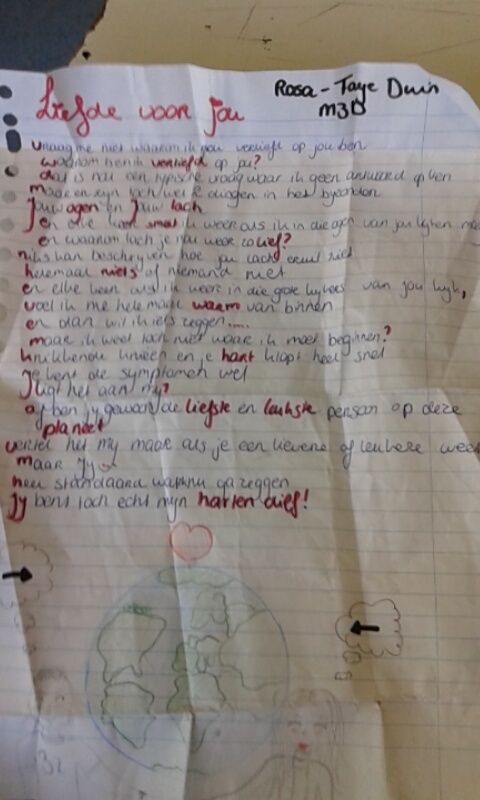 Rosa-Taye Duin
M3D
Liefde voor jou
vraag me niet waarom ik nou verliefd op jou ben
waarom ben ik verliefd op jou?
dat is nou een typische vraag waar ik geen antwoord op ben
maar er zijn toch wel dingen in het byzonder
jouw ogen en jouw lach
en elke keer smelt ik weer als ik in die ogen van jou kijken
en waarom lach je nou weer zo lief?
niks kan beschryven hoe jou lach eruit ziet
helemaal niets of niemand niet
en elke keer als ik weer in die grote kykers van jou kyk,
voel ik me helemaal warm van binnen
en dan wil ik iets zeggen.....
maar ik weet toch niet waar ik moet beginnen?
knikkende knieen en je hart klopt heel snel
Je kent de symptomen wel
ligt het aan my?
of ben jy gewoon de liefste en leukste persoon op deze
planeet
vertel het my maar als je een lievere of leukere weet
maar Jy
heel standaard wat ik nu ga zeggen
Jy bent toch echt mijn harten dief!